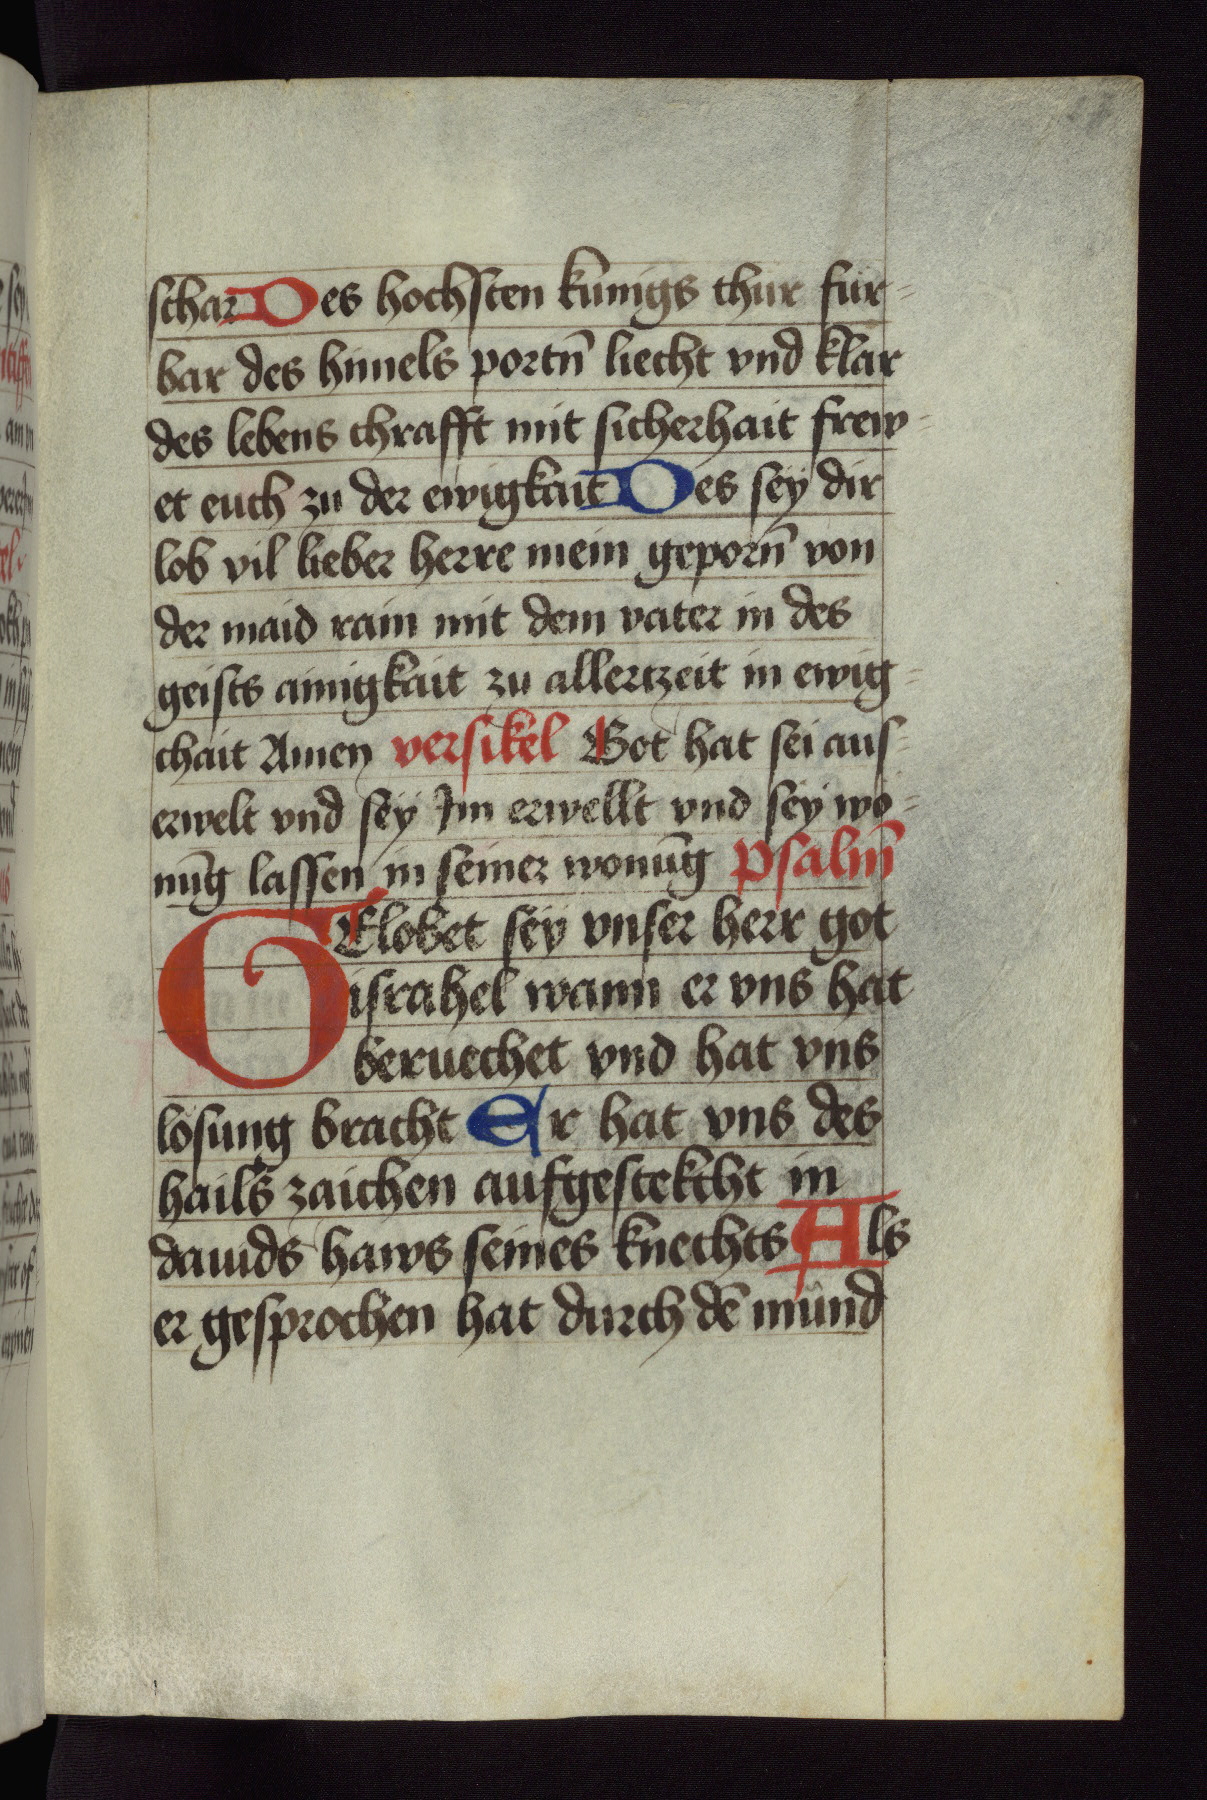 schar Des hochsten künigs thür für-
bar des himels portn̄ liecht vnd klar
des lebens chrafft mit sicherhait frew-
et euch zu der ewigkait Des sey dir
lob vil lieber herre mein geporn̄ von
der maid rain mit dem vater in des
geists ainigkait zu allertzeit in ewig-
chait Amen versikel Got hat sei aus-
erwelt vnd sey Im erwellt vnd sey wo-
nūg lassen in seiner wonūg psalm̄
GElobet sey vnser herr got
israhel wann er vns hat
beruechet vnd hat vns
lösung bracht Er hat vns des
hails zaichen aufgestekcht in
dauids haws seines knechts Als
er gesprochen hat durch dē mund